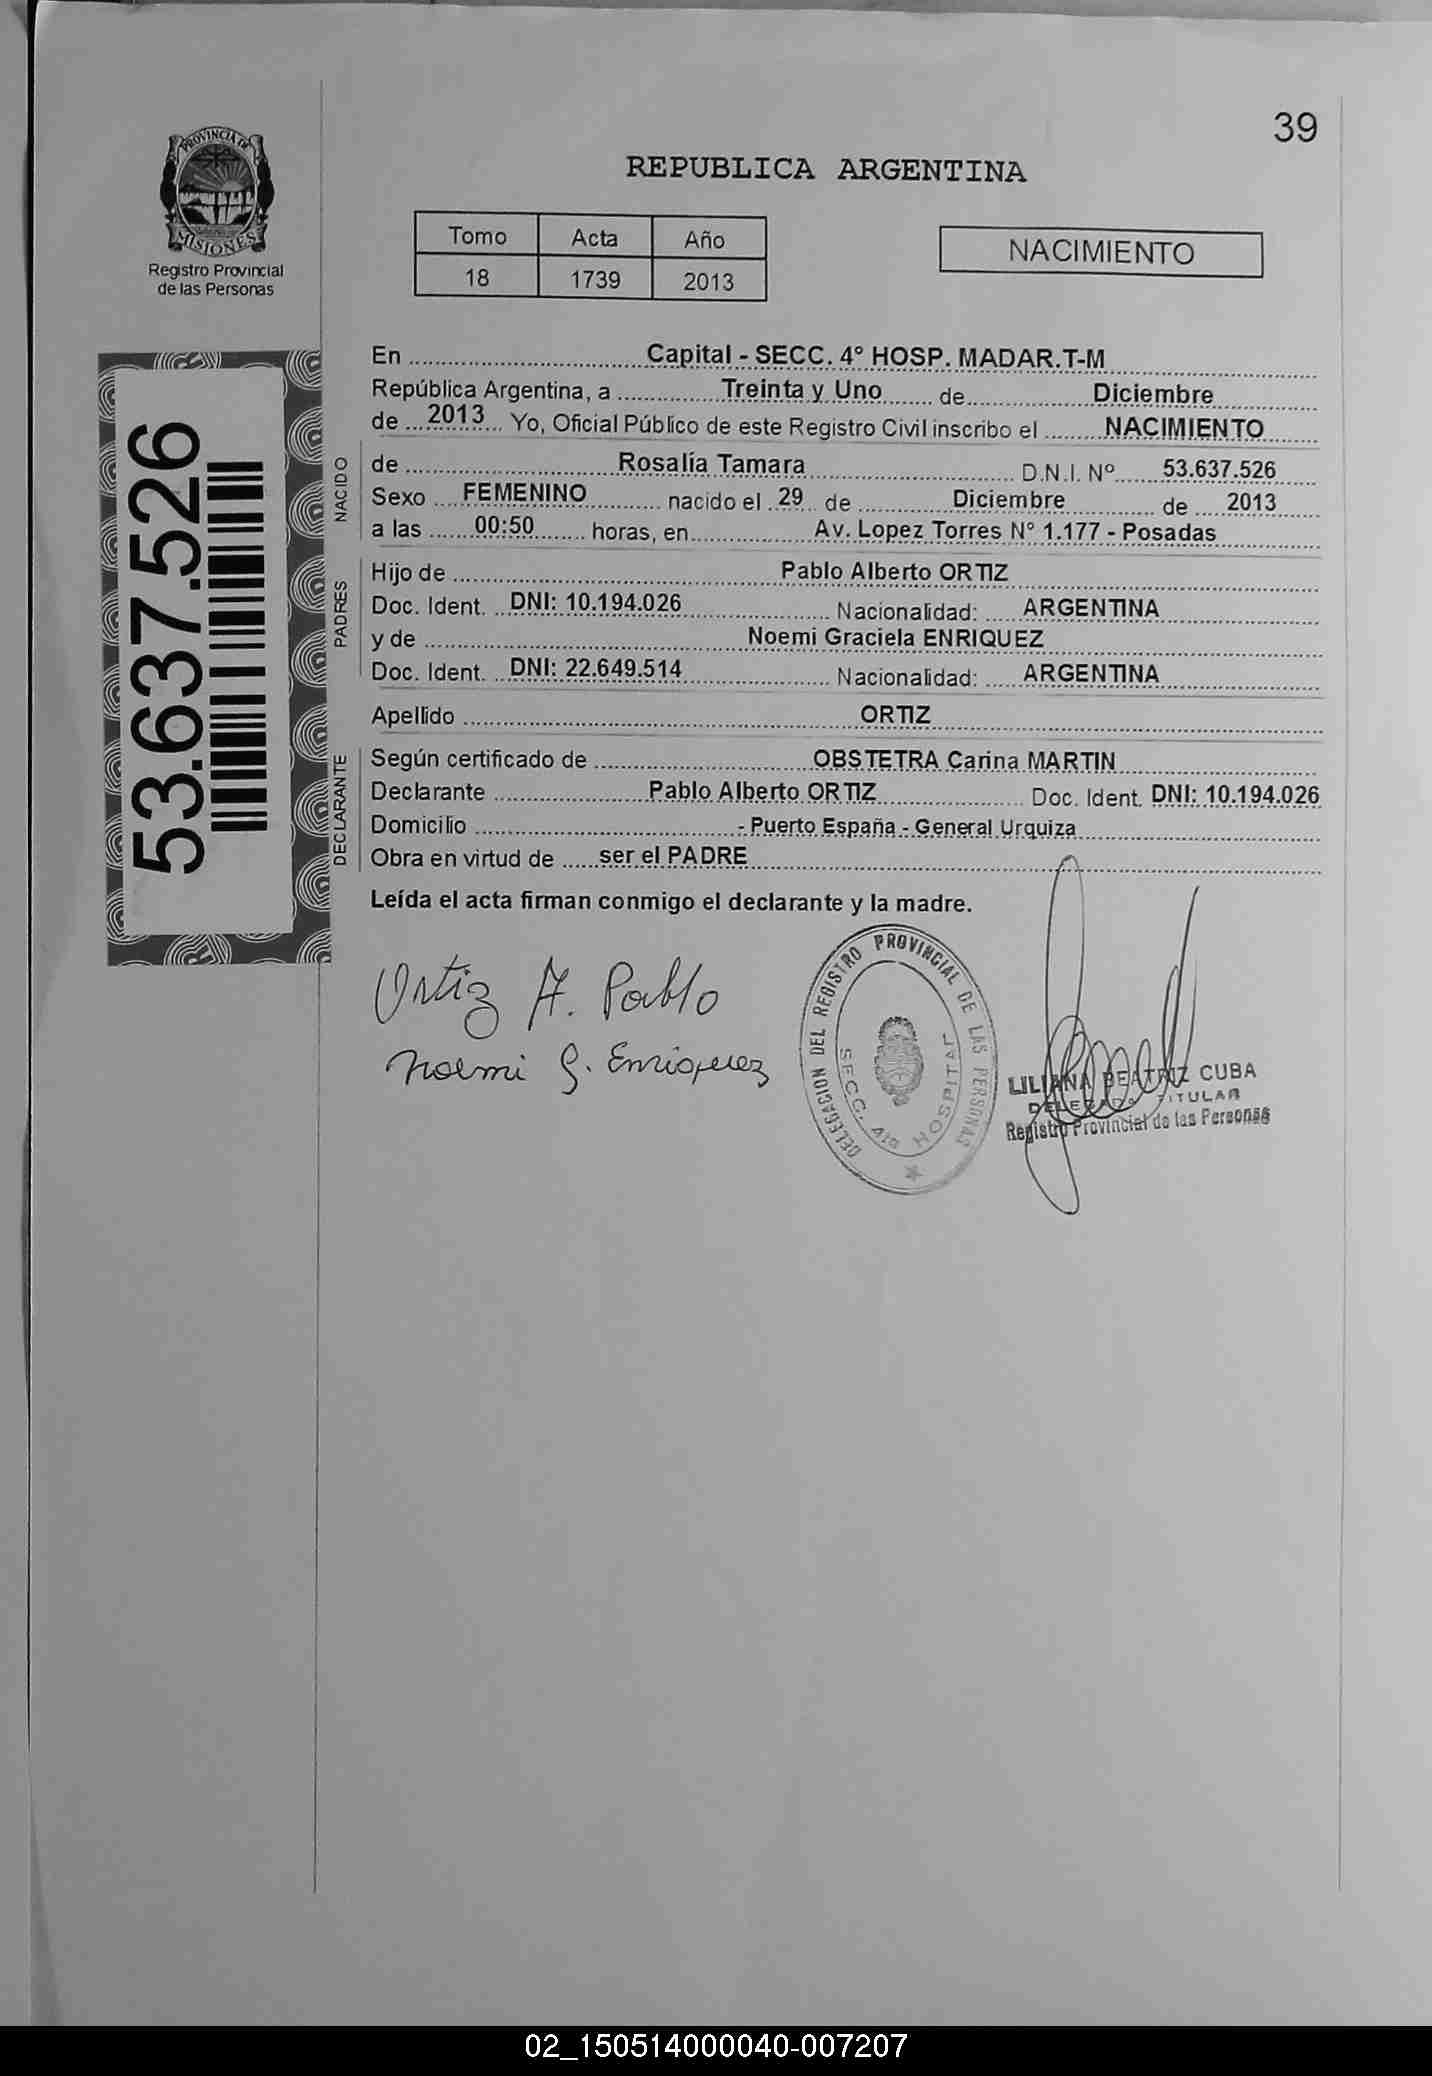 39
PROVINCIA DE
MISIONES
Registro Provincial
de las Personas
REPUBLICA ARGENTINA
Tomo Acta Año
18 1739 2013
NACIMIENTO
53.637.526
En ........ Capital - SECC. 4° HOSP. MADAR.T-M ........
República Argentina, a ........ Treinta y Uno ........ de ........ Diciembre ........
de ... 2013 ... Yo, Oficial Público de este Registro Civil inscribo el ........ NACIMIENTO ........
NACIDO
de ........ Rosalía Tamara ........ D.N.I. Nº ..... 53.637.526
Sexo .... FEMENINO ........ nacido el .. 29 .. de ........ Diciembre ........ de .... 2013 ....
a las ....... 00:50 ....... horas, en ........ Av. Lopez Torres N° 1.177 - Posadas ........
PADRES
Hijo de ........ Pablo Alberto ORTIZ ........
Doc. Ident. .. DNI: 10.194.026 ........ Nacionalidad: ..... ARGENTINA ........
y de ........ Noemi Graciela ENRIQUEZ ........
Doc. Ident. .. DNI: 22.649.514 ........ Nacionalidad: ..... ARGENTINA ........
Apellido ........ ORTIZ ........
DECLARANTE
Según certificado de ........ OBSTETRA Carina MARTIN ........
Declarante ........ Pablo Alberto ORTIZ ........ Doc. Ident. DNI: 10.194.026
Domicilio ........ - Puerto España - General Urquiza ........
Obra en virtud de ..... ser el PADRE ........
Leída el acta firman conmigo el declarante y la madre.
Ortiz A. Pablo
Noemi G. Enriquez
DELEGACION DEL REGISTRO PROVINCIAL DE LAS PERSONAS
SECC. 4ta HOSPITAL
LILIANA BEATRIZ CUBA
DELEGADO TITULAR
Registro Provincial de las Personas
02_150514000040-007207